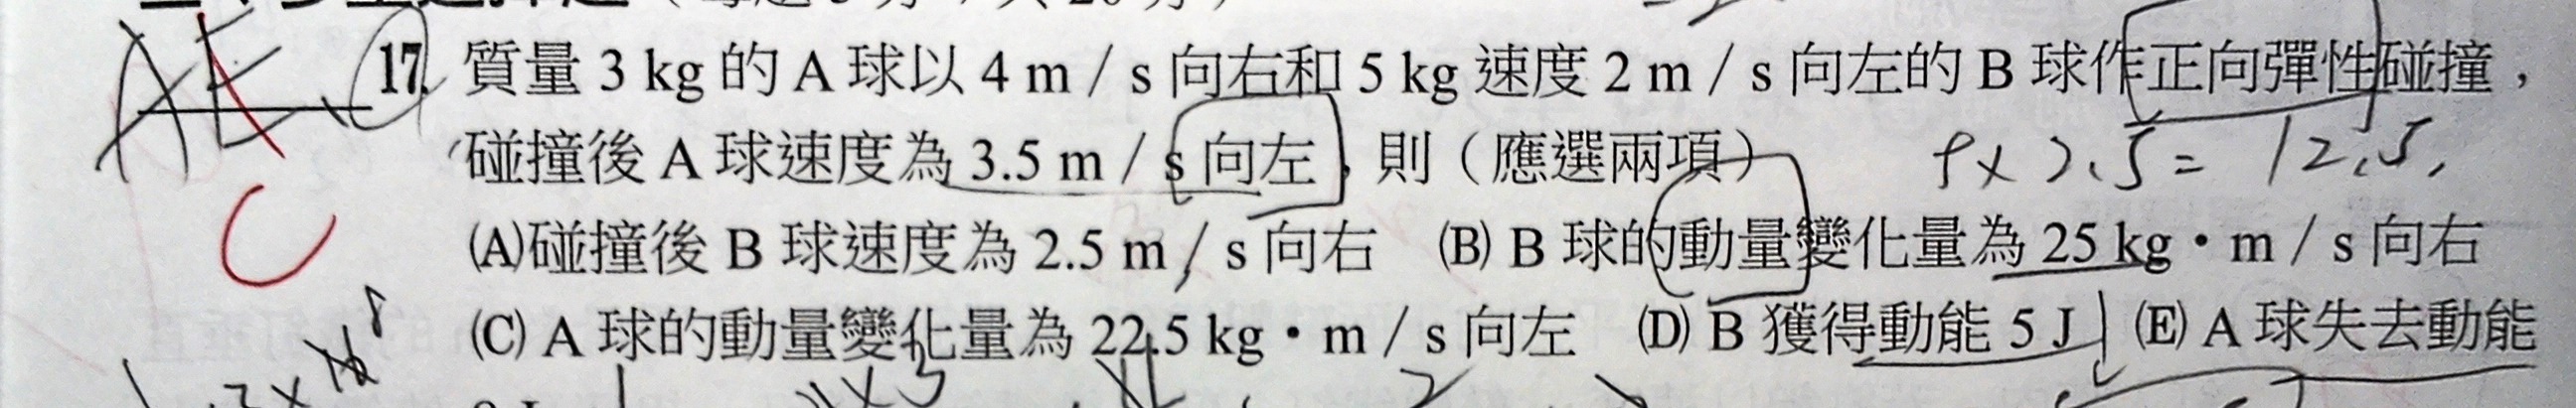 17. 質量 3 kg 的 A 球以 4 m / s 向右和 5 kg 速度 2 m / s 向左的 B 球作正向彈性碰撞，
碰撞後 A 球速度為 3.5 m / s 向左，則（應選兩項）
(A)碰撞後 B 球速度為 2.5 m / s 向右 (B) B 球的動量變化量為 25 kg・m / s 向右
(C) A 球的動量變化量為 22.5 kg・m / s 向左 (D) B 獲得動能 5 J (E) A 球失去動能
AE
C